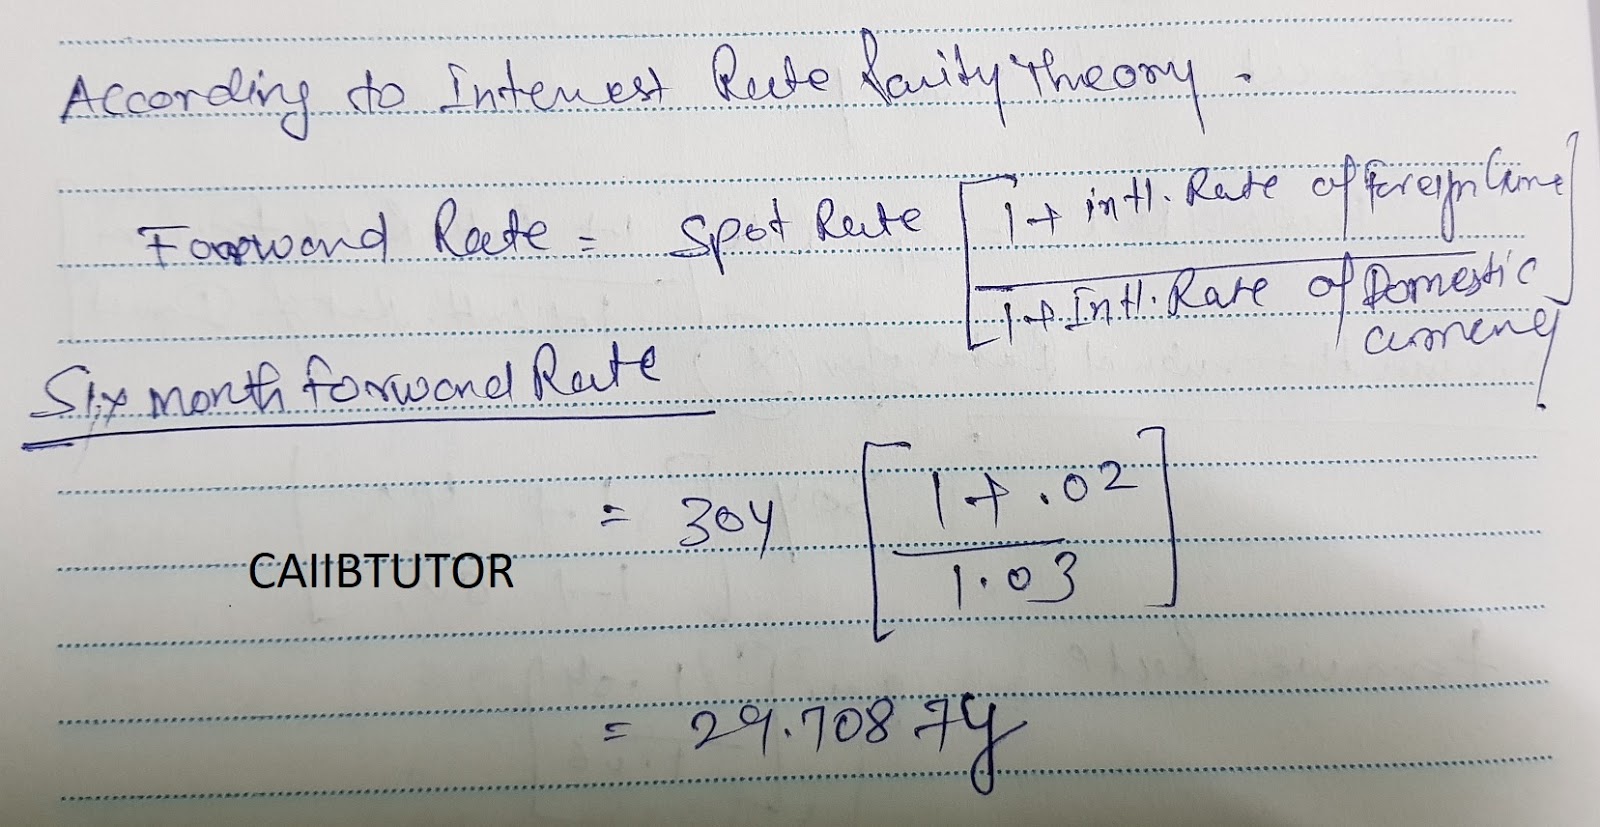 According to Interest Rate Parity Theory.
Forward Rate = Spot Rate [ 1 + intl. Rate of Foreign
1 + Intl. Rate of Domestic
currency ]
Six month forward Rate
= 30y [ 1 + .02
1.03 ]
CAIIBTUTOR
= 29.7087y